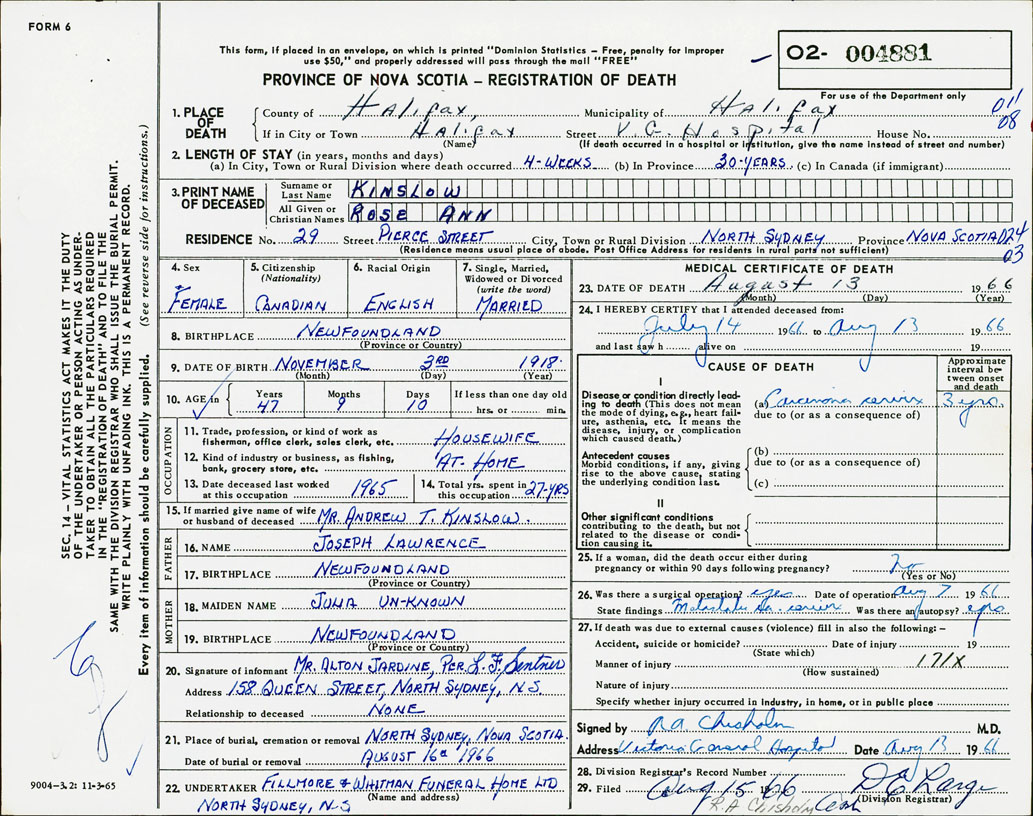 FORM 6
This form, if placed in an envelope, on which is printed "Dominion Statistics – Free, penalty for improper
use $50," and properly addressed will pass through the mail "FREE"
O2- 004881
PROVINCE OF NOVA SCOTIA – REGISTRATION OF DEATH
For use of the Department only
011
08
1. PLACE OF DEATH
County of Halifax, Municipality of Halifax
If in City or Town Halifax Street V. G. Hospital House No.
(Name) (If death occurred in a hospital or institution, give the name instead of street and number)
2. LENGTH OF STAY (in years, months and days)
(a) In City, Town or Rural Division where death occurred 4-WEEKS (b) In Province 30-YEARS (c) In Canada (if immigrant)
3. PRINT NAME OF DECEASED
Surname or Last Name KINSLOW
All Given or Christian Names ROSE ANN
RESIDENCE No. 29 Street PIERCE STREET City, Town or Rural Division NORTH SYDNEY Province NOVA SCOTIA 024
(Residence means usual place of abode. Post Office Address for residents in rural parts not sufficient) 03
4. Sex
FEMALE
5. Citizenship
(Nationality)
CANADIAN
6. Racial Origin
ENGLISH
7. Single, Married,
Widowed or Divorced
(write the word)
MARRIED
8. BIRTHPLACE NEWFOUNDLAND
(Province or Country)
9. DATE OF BIRTH NOVEMBER 3RD 1918.
(Month) (Day) (Year)
10. AGE in Years Months Days If less than one day old
47 9 10 hrs. or min.
OCCUPATION
11. Trade, profession, or kind of work as
fisherman, office clerk, sales clerk, etc. HOUSEWIFE
12. Kind of industry or business, as fishing,
bank, grocery store, etc. AT-HOME
13. Date deceased last worked
at this occupation 1965
14. Total yrs. spent in
this occupation 27-YRS
15. If married give name of wife
or husband of deceased MR. ANDREW T. KINSLOW.
FATHER
16. NAME JOSEPH LAWRENCE
17. BIRTHPLACE NEWFOUNDLAND
(Province or Country)
MOTHER
18. MAIDEN NAME JULIA UN-KNOWN
19. BIRTHPLACE NEWFOUNDLAND
(Province or Country)
20. Signature of informant MR. ALTON JARDINE, PER. L. F. Sentner
Address 158 QUEEN STREET, NORTH SYDNEY, N.S.
Relationship to deceased NONE
21. Place of burial, cremation or removal NORTH SYDNEY, NOVA SCOTIA.
Date of burial or removal AUGUST 16th 1966
22. UNDERTAKER FILLMORE & WHITMAN FUNERAL HOME LTD
(Name and address)
NORTH SYDNEY, N.S
MEDICAL CERTIFICATE OF DEATH
23. DATE OF DEATH August 13 1966
(Month) (Day) (Year)
24. I HEREBY CERTIFY that I attended deceased from:
July 14 1966 to Aug 13 1966
and last saw h alive on 19
CAUSE OF DEATH
Approximate
interval be-
tween onset
and death
I
Disease or condition directly lead-
ing to death (This does not mean
the mode of dying, e.g., heart fail-
ure, asthenia, etc. It means the
disease, injury, or complication
which caused death.)
(a) Carcinoma cervix 3 yrs.
due to (or as a consequence of)
Antecedent causes
Morbid conditions, if any, giving
rise to the above cause, stating
the underlying condition last.
(b)
due to (or as a consequence of)
(c)
II
Other significant conditions
contributing to the death, but not
related to the disease or condi-
tion causing it.
25. If a woman, did the death occur either during
pregnancy or within 90 days following pregnancy? no
(Yes or No)
26. Was there a surgical operation? yes Date of operation Aug 7 1966
State findings Metastatic Ca. cervix Was there an autopsy? yes
27. If death was due to external causes (violence) fill in also the following: –
Accident, suicide or homicide? Date of injury 19
(State which)
Manner of injury 171X
(How sustained)
Nature of injury
Specify whether injury occurred in industry, in home, or in public place
Signed by R A Chisholm M.D.
Address Victoria General Hospital Date Aug 13 1966
28. Division Registrar's Record Number
29. Filed Aug 15 1966 D E Large
R A Chisholm (Division Registrar)
SEC. 14 – VITAL STATISTICS ACT MAKES IT THE DUTY
OF THE UNDERTAKER OR PERSON ACTING AS UNDER-
TAKER TO OBTAIN ALL THE PARTICULARS REQUIRED
IN THE "REGISTRATION OF DEATH" AND TO FILE THE
SAME WITH THE DIVISION REGISTRAR WHO SHALL ISSUE THE BURIAL PERMIT.
WRITE PLAINLY WITH UNFADING INK. THIS IS A PERMANENT RECORD.
Every item of information should be carefully supplied. (See reverse side for instructions.)
9004–3.2: 11-3-65